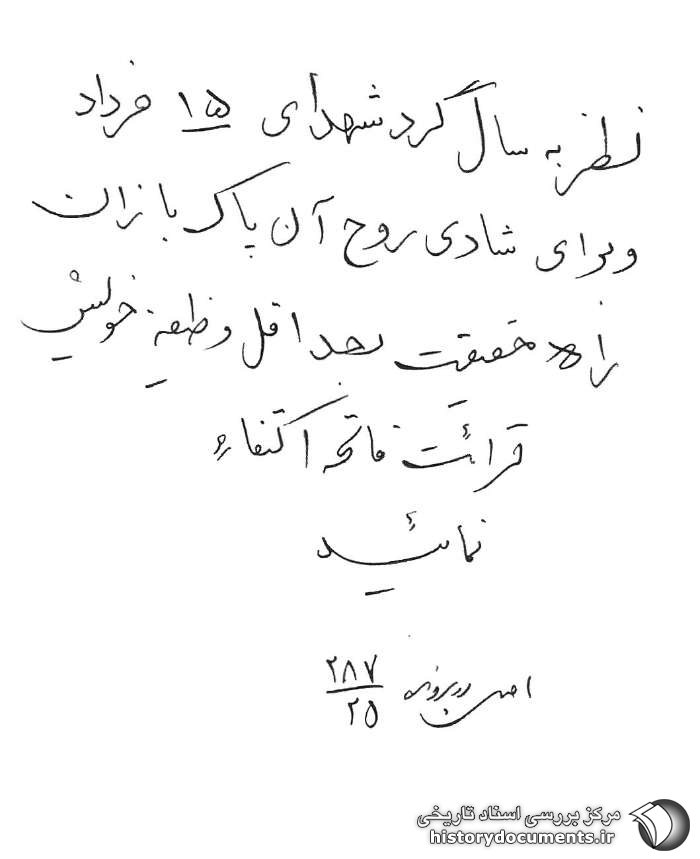 نظر به سال گرد شهدای ۱۵ خرداد
و برای شادی روح آن پاک بازان
راه حقیقت بحد اقل وظیفهٔ خویش
قرائت فاتحه اکتفاء
نمائید
اصل در پرونده ۲۸۷/۲۵
مرکز بررسی اسناد تاریخی
historydocuments.ir